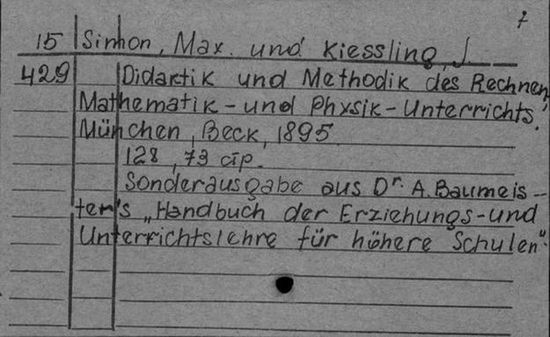 7
15 Simon, Max. und Kiessling, J.
429 Didaktik und Methodik des Rechnen,
Mathematik-und Physik-Unterrichts.
München, Beck, 1895.
128, 73 стр.
Sonderausgabe aus Dr. A. Baumeis-
ter's „Handbuch der Erziehungs-und
Unterrichtslehre für höhere Schulen".